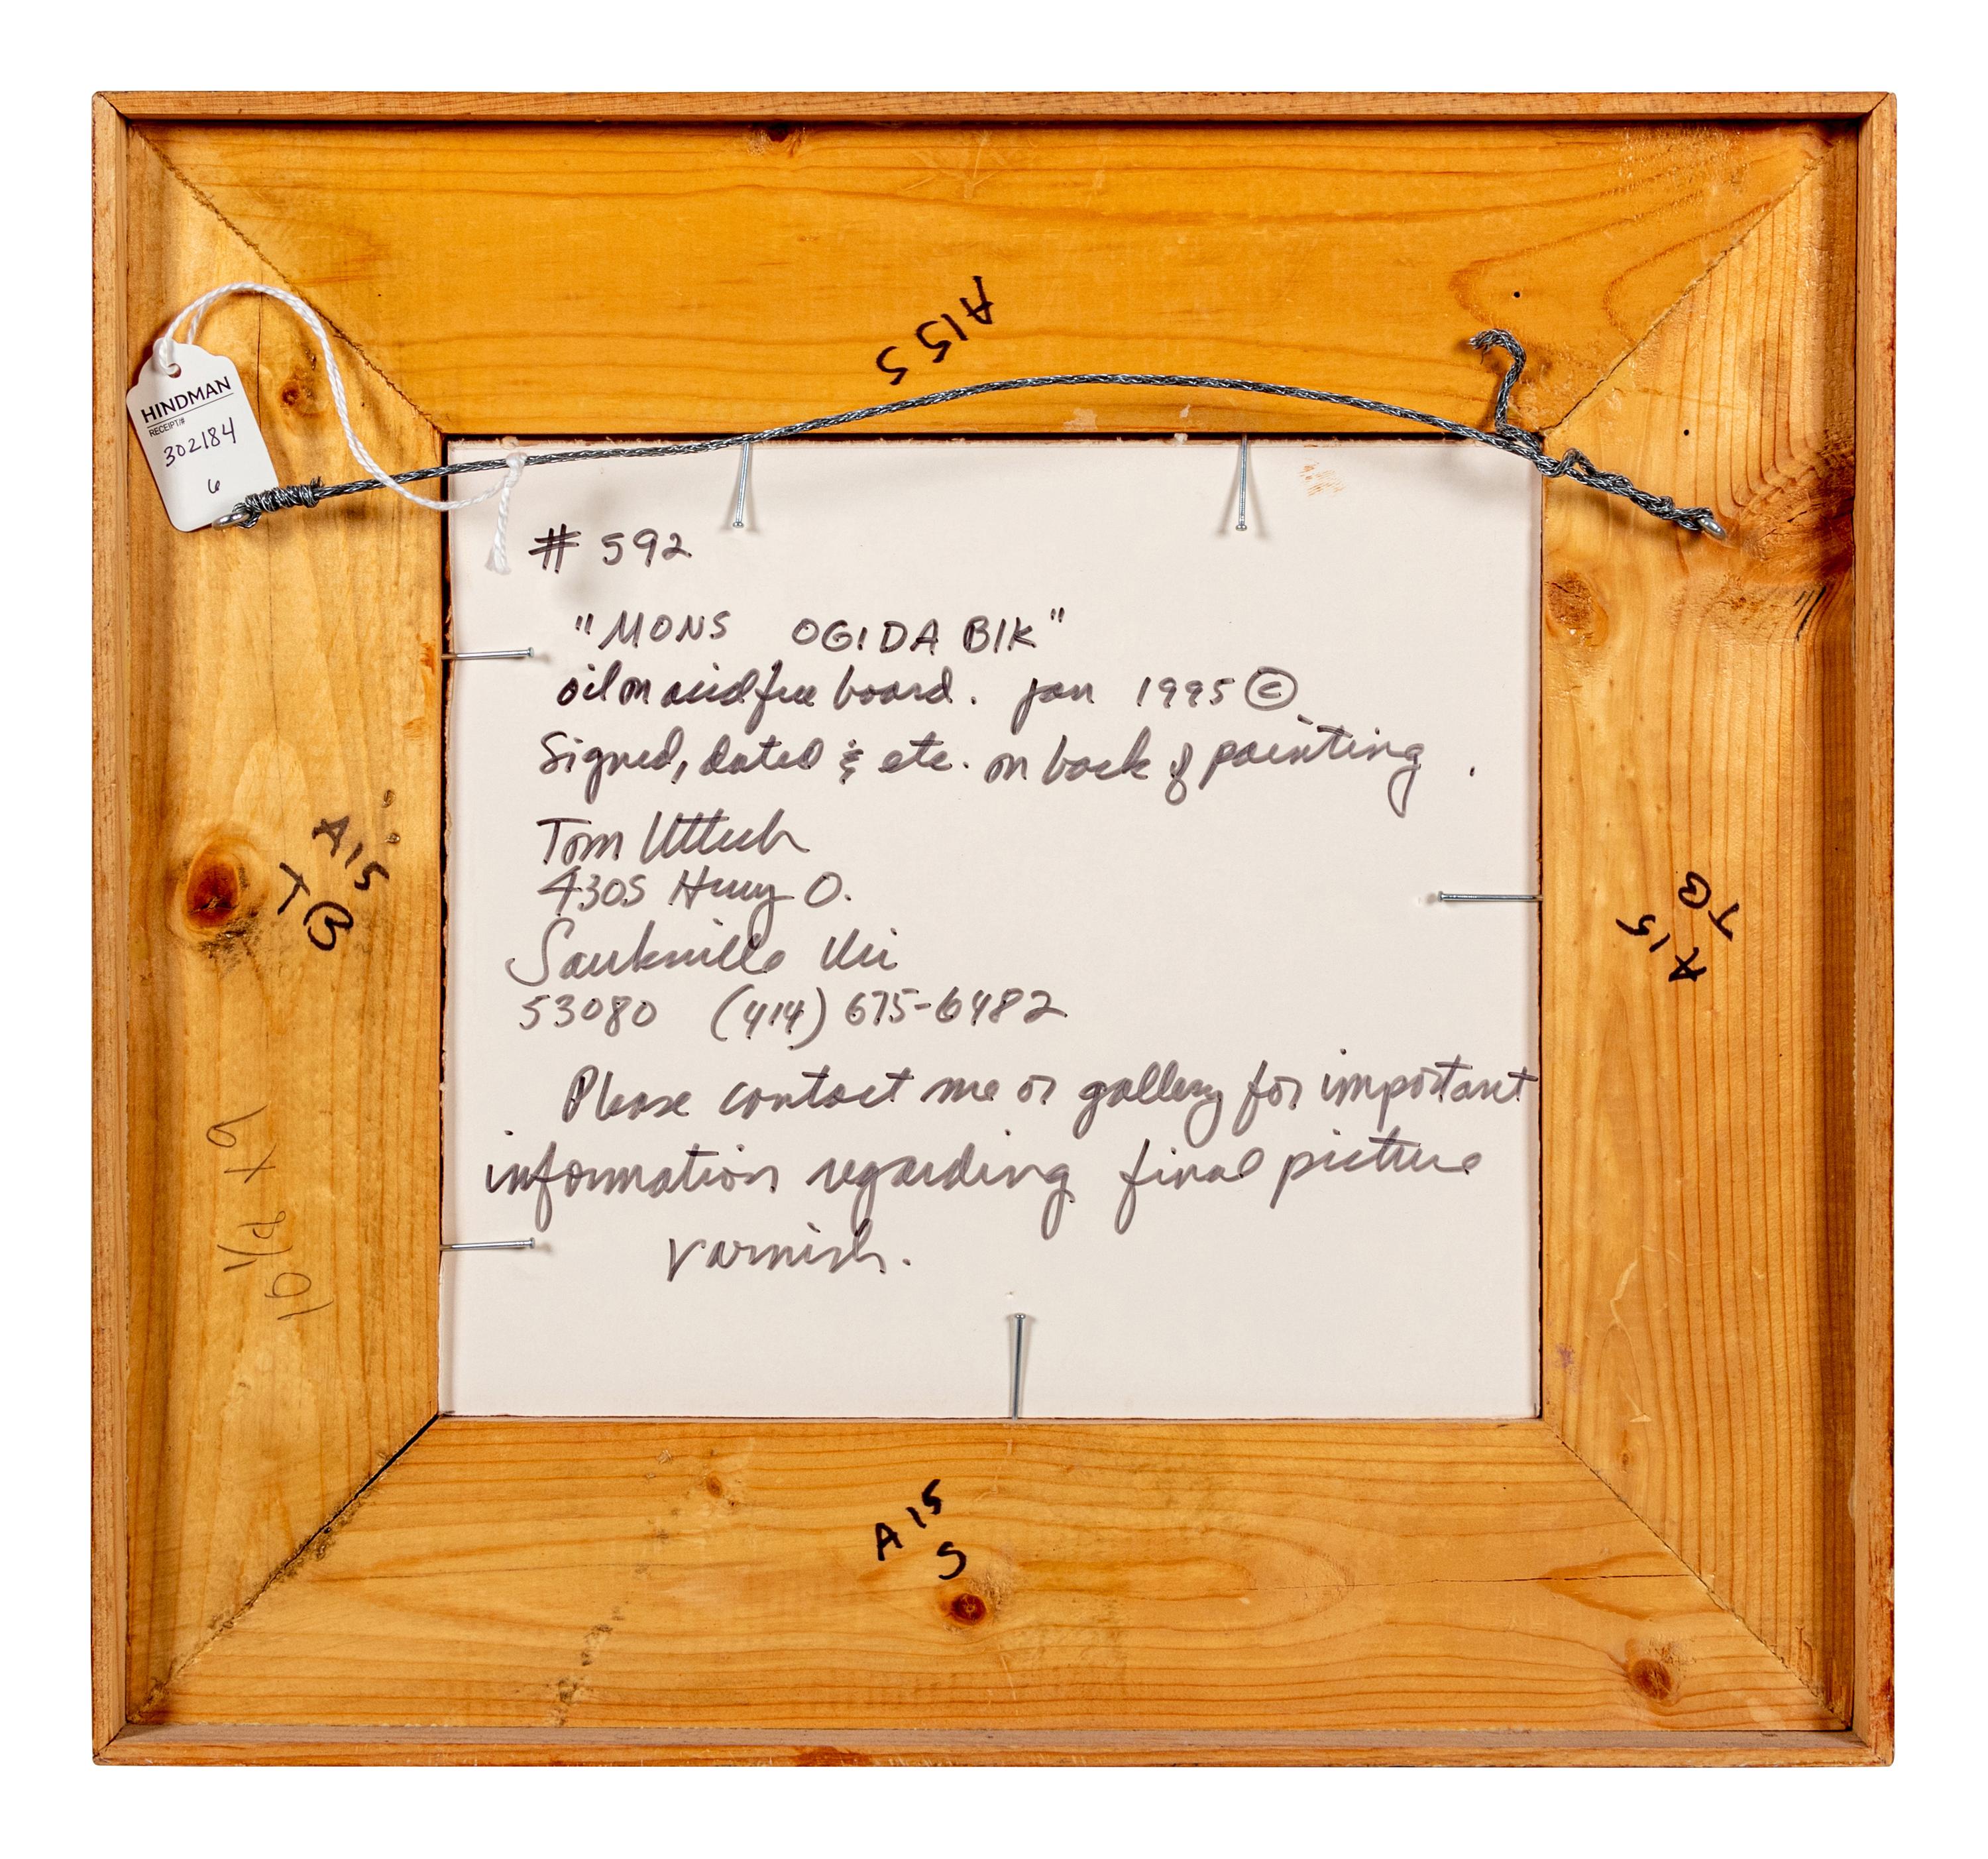 A15 S
HINDMAN
RECEIPT#
302184
6
# 592
"MONS OGIDA BIK"
oil on acid free board. Jan 1995 ©
Signed, dated & etc. on back of painting.
Tom Uttech
4305 Hwy O.
Saukville Wi
53080 (414) 675-6482
Please contact me or gallery for important
information regarding final picture
varnish.
A15
TB
A15
A15
S